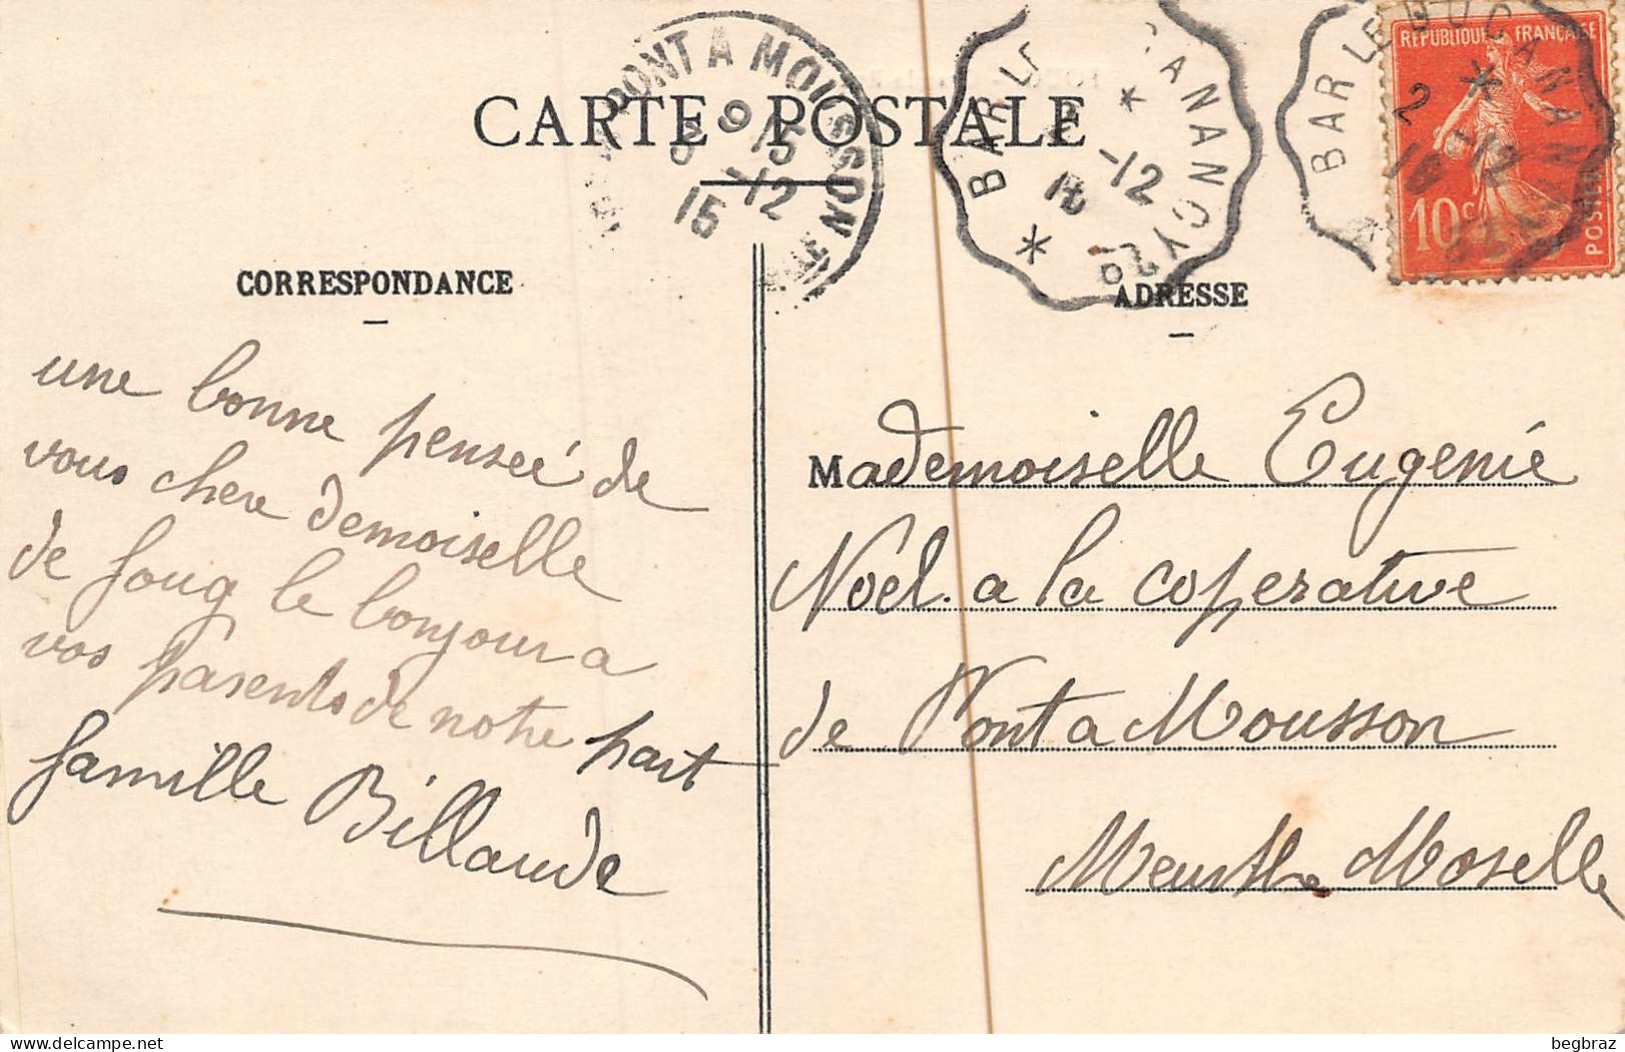 CARTE POSTALE
PONT A MOUSSON
9 15
-12
15
BAR LE DUC A NANCY
-12
BAR LE DUC A NANCY
2
-12
REPUBLIQUE FRANÇAISE
10 c
POSTES
CORRESPONDANCE
une bonne penseé de
vous chere demoiselle
de foug le bonjour a
vos parents de notre part
famille Billaude
ADRESSE
Mademoiselle Eugenie
Noel. a la coperative
de Pont a Mousson
Meurthe Moselle
begbraz